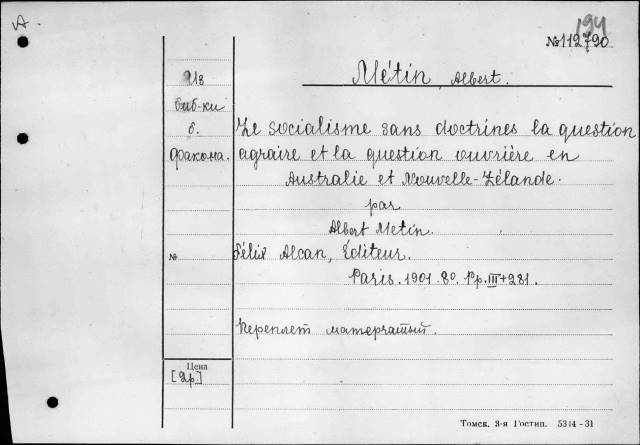 A.
194
№112790
Из
Métin, Albert.
биб-ки
б.
Le socialisme sans doctrines la question
факона.
agraire et la question ouvrière en
Australie et Nouvelle-Zélande.
par
Albert Metin.
№
Félix Alcan, Éditeur.
Paris. 1901. 8o. Pp. III + 281.
Переплет матерчатый.
Цена
[2р.]
Томск, 3-я Гостип. 5314-31